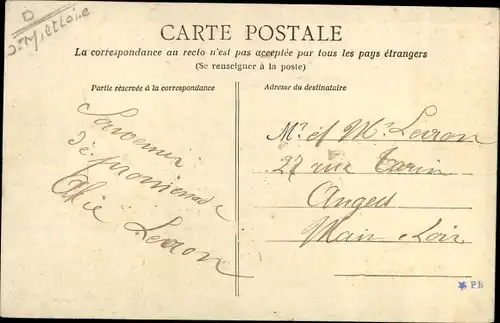 D
Mt et Loire
CARTE POSTALE
La correspondance au recto n'est pas acceptée par tous les pays étrangers
(Se renseigner à la poste)
Partie réservée à la correspondance
Adresse du destinataire
Souvenir
de promenade
Lerron
Mr et Me Lerron
27 rue Tarin
Angers
Main & Loir
PB